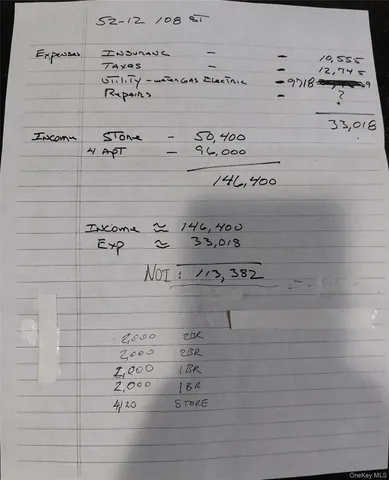 52-12 108 ST
Expenses INSURANC - - 10,555
TAXES - - 12,745
Utility - water GAS Electric - 9718
Repairs - ?
33,018
Income STORE - 50,400
4 APT - 96,000
146,400
Income ≈ 146,400
Exp ≈ 33,018
NOI : 113,382
2,000 2BR
2,000 2BR
2,000 1BR
2,000 1BR
4,120 STORE
OneKey MLS